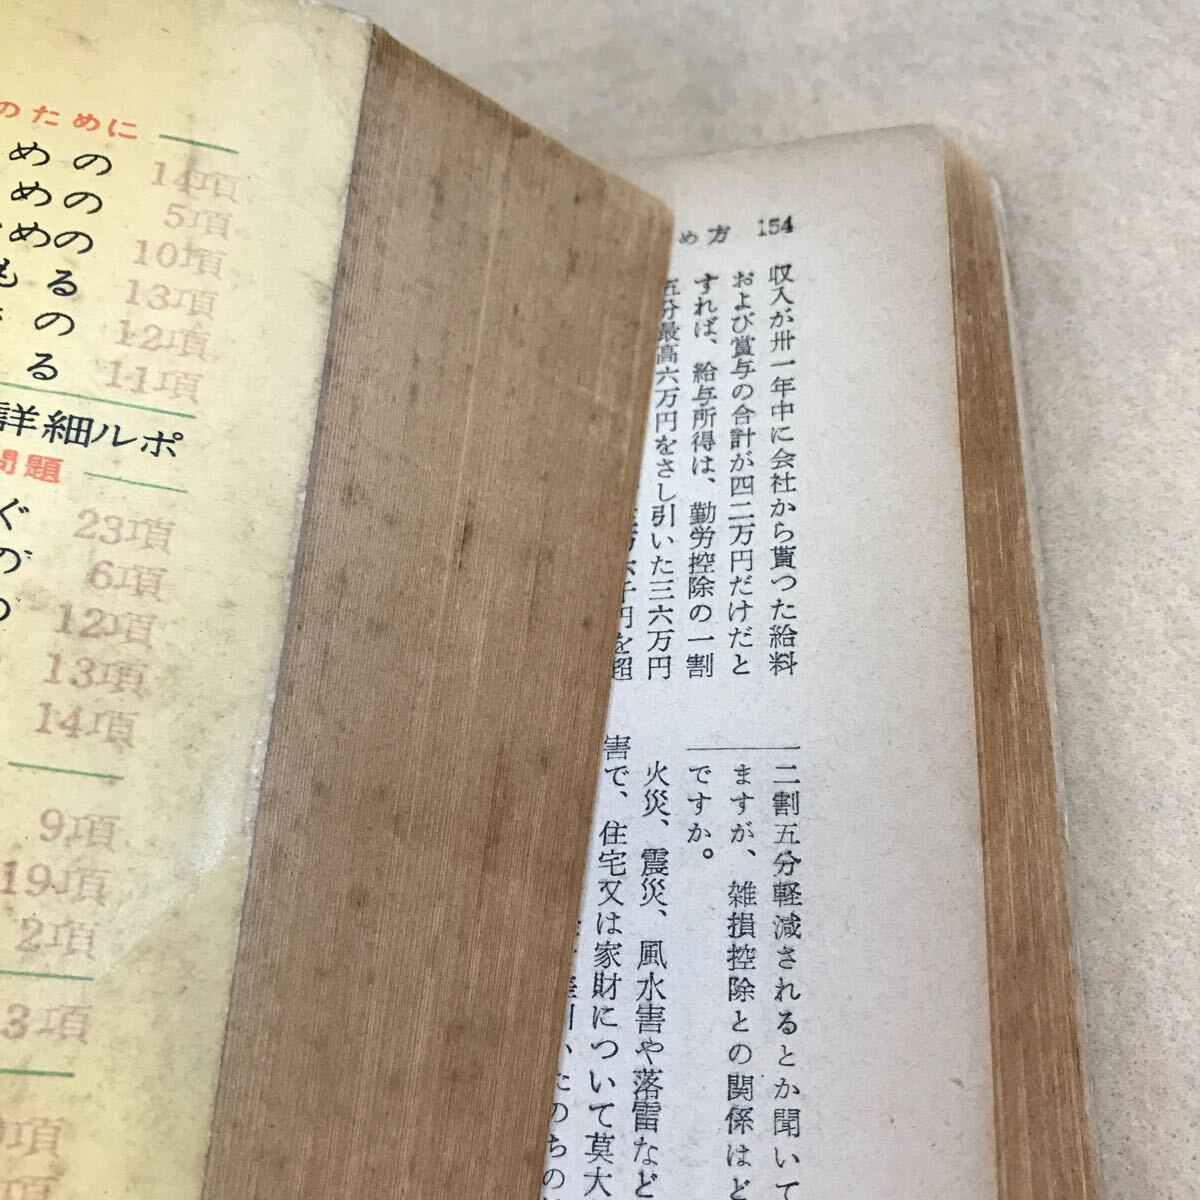 のために
めの 14項
めの 5項
めの 10項
もる 13項
の 12項
る 11項
詳細ルポ
問題
ぐ 23項
の 6項
の 12項
13項
14項
9項
19項
2項
3項
項
項
め方 154
収入が卅一年中に会社から貰つた給料
および賞与の合計が四二万円だけだと
すれば、給与所得は、勤労控除の一割
五分最高六万円をさし引いた三六万円
千円を超
二割五分軽減されるとか聞いて
ますが、雑損控除との関係はど
ですか。
火災、震災、風水害や落雷など
害で、住宅又は家財について莫大
差引いたのちの